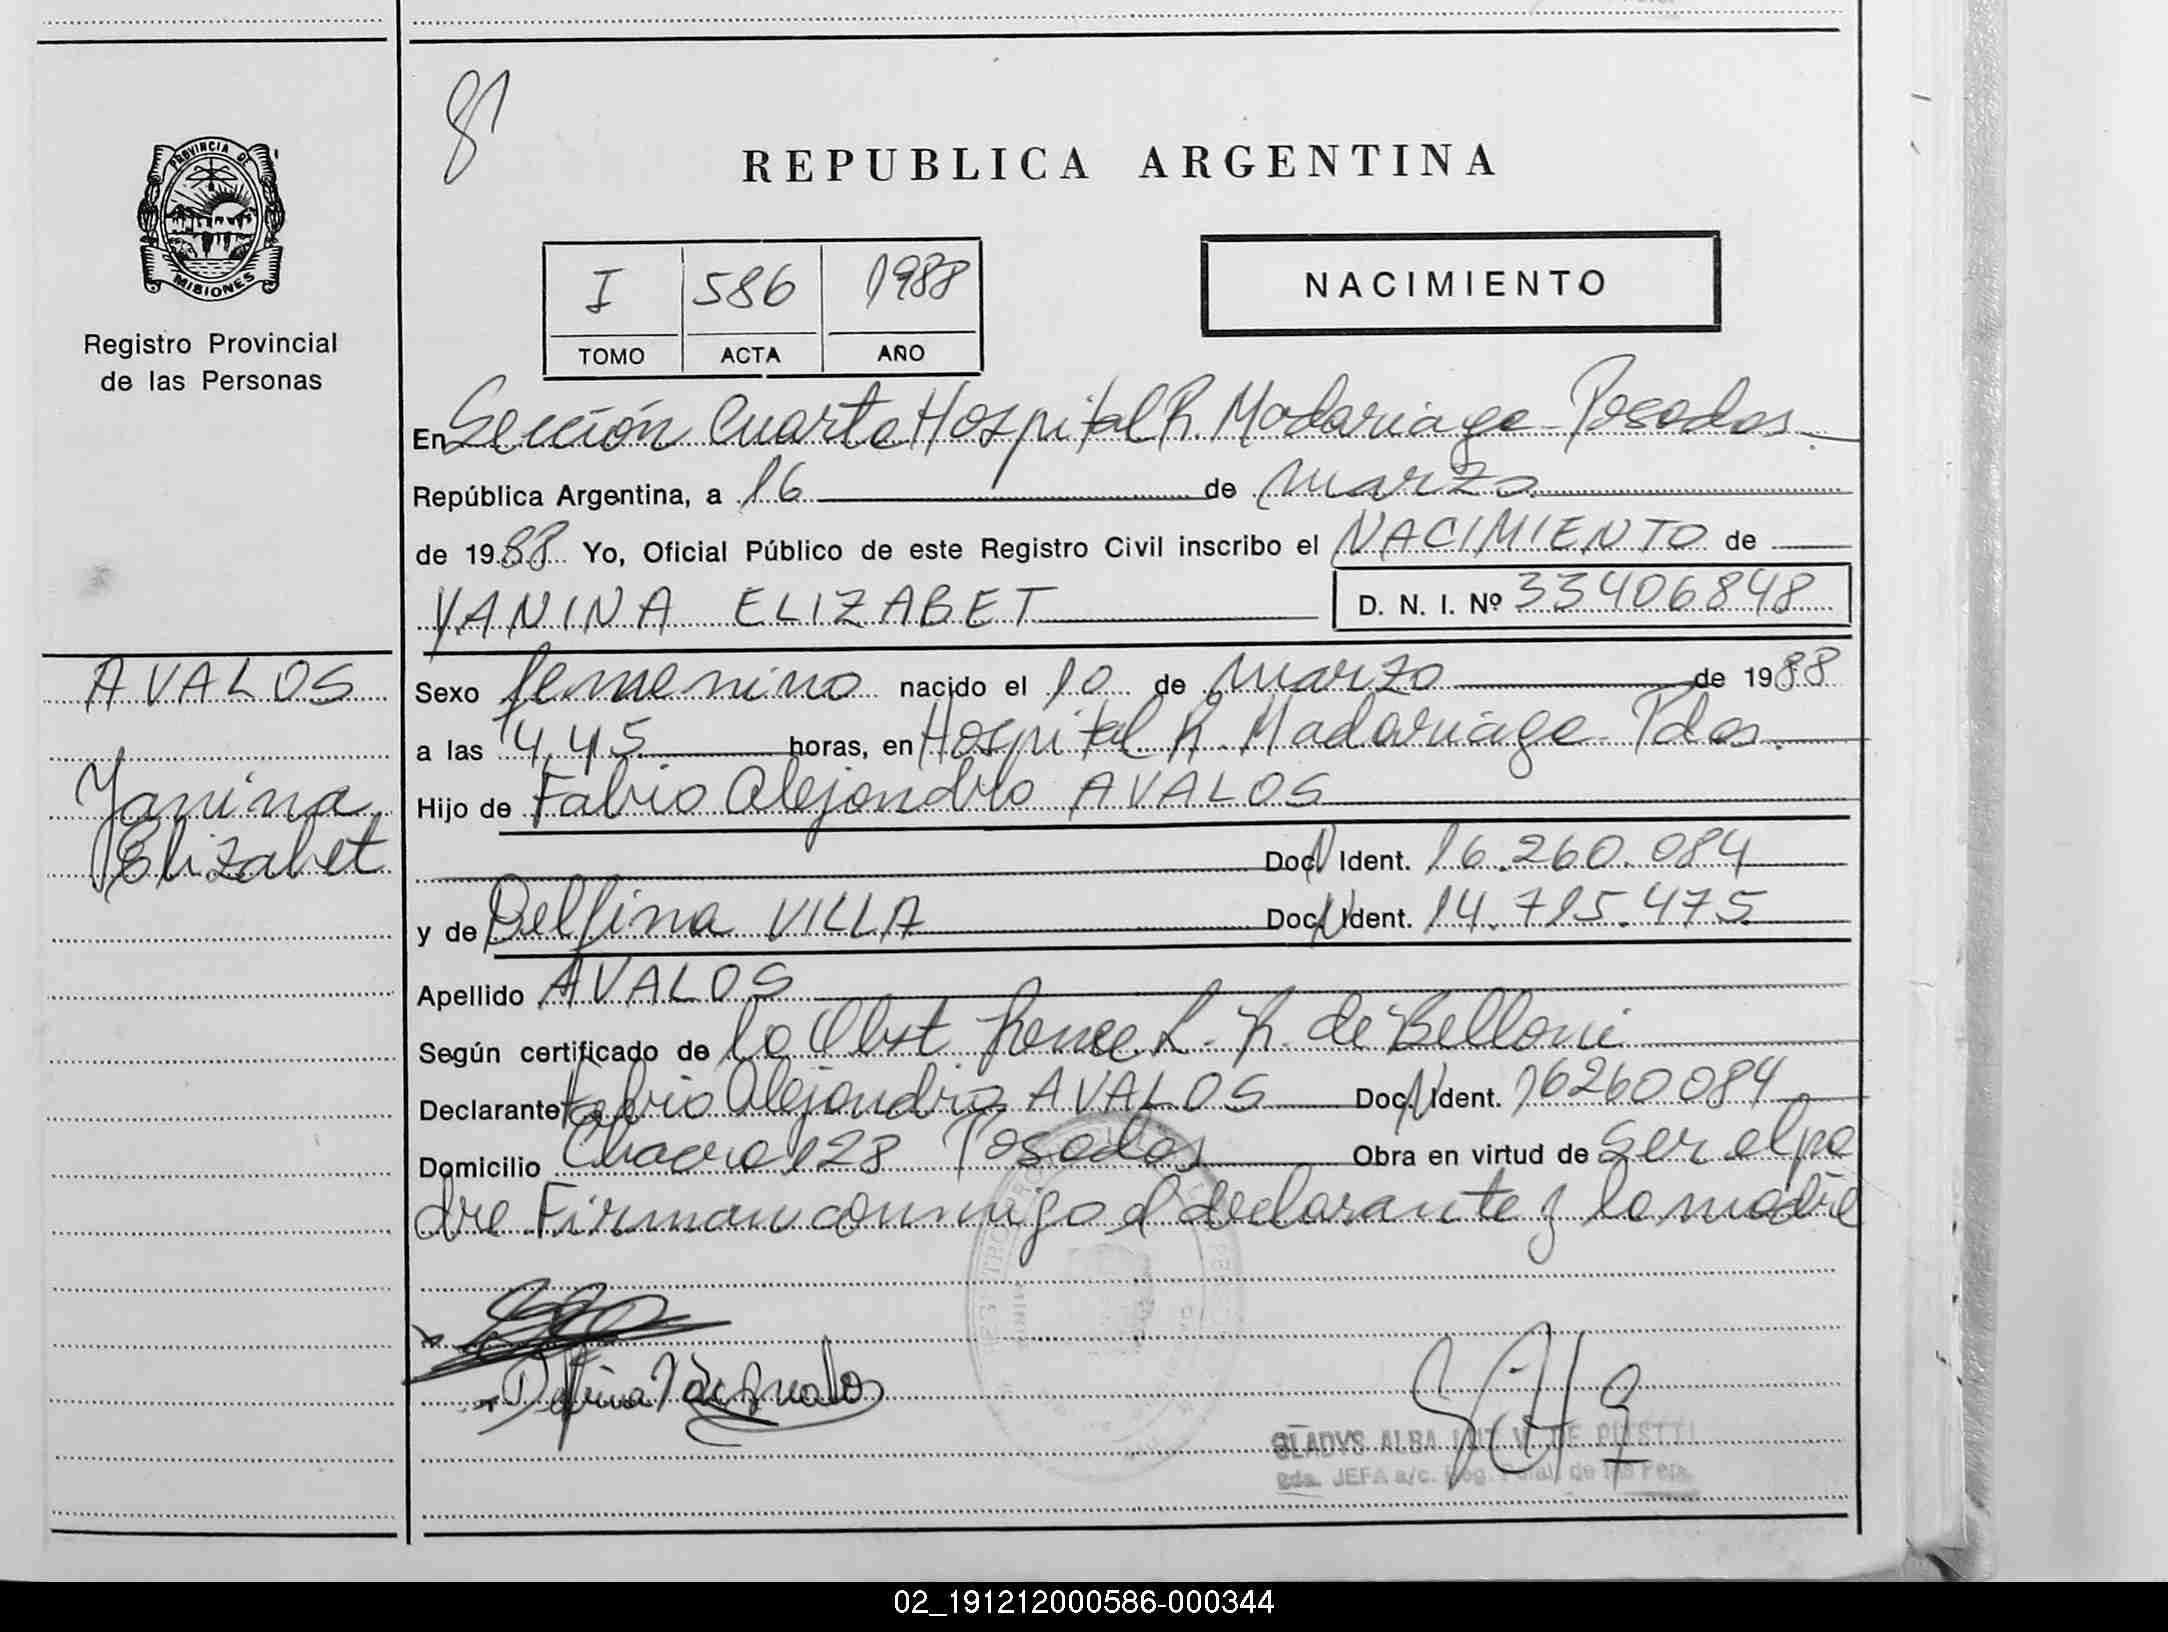 PROVINCIA DE
MISIONES
Registro Provincial
de las Personas
AVALOS
Yanina
Elizabet
REPUBLICA ARGENTINA
I 586 1988
TOMO ACTA AÑO
NACIMIENTO
En Sección Cuarta Hospital R. Madariaga - Posadas
República Argentina, a 16 de marzo
de 1988 Yo, Oficial Público de este Registro Civil inscribo el NACIMIENTO de
YANINA ELIZABET D. N. I. Nº 33406848
Sexo femenino nacido el 10 de marzo de 1988
a las 14,45 horas, en Hospital R. Madariaga - Pdas.
Hijo de Fabio Alejandro AVALOS
Doc. N Ident. 16.260.084
y de Delfina VILLA Doc. N Ident. 14.715.475
Apellido AVALOS
Según certificado de la Obst L. R. de Belloni
Declarante Fabio Alejandro AVALOS Doc. N Ident. 16260084
Domicilio Chacra 128 Posadas Obra en virtud de ser el pa
dre Firman conmigo el declarante y la madre
Delfina
GLADYS ALBA DE
JEFA a/c. Reg. de las Pers.
02_191212000586-000344